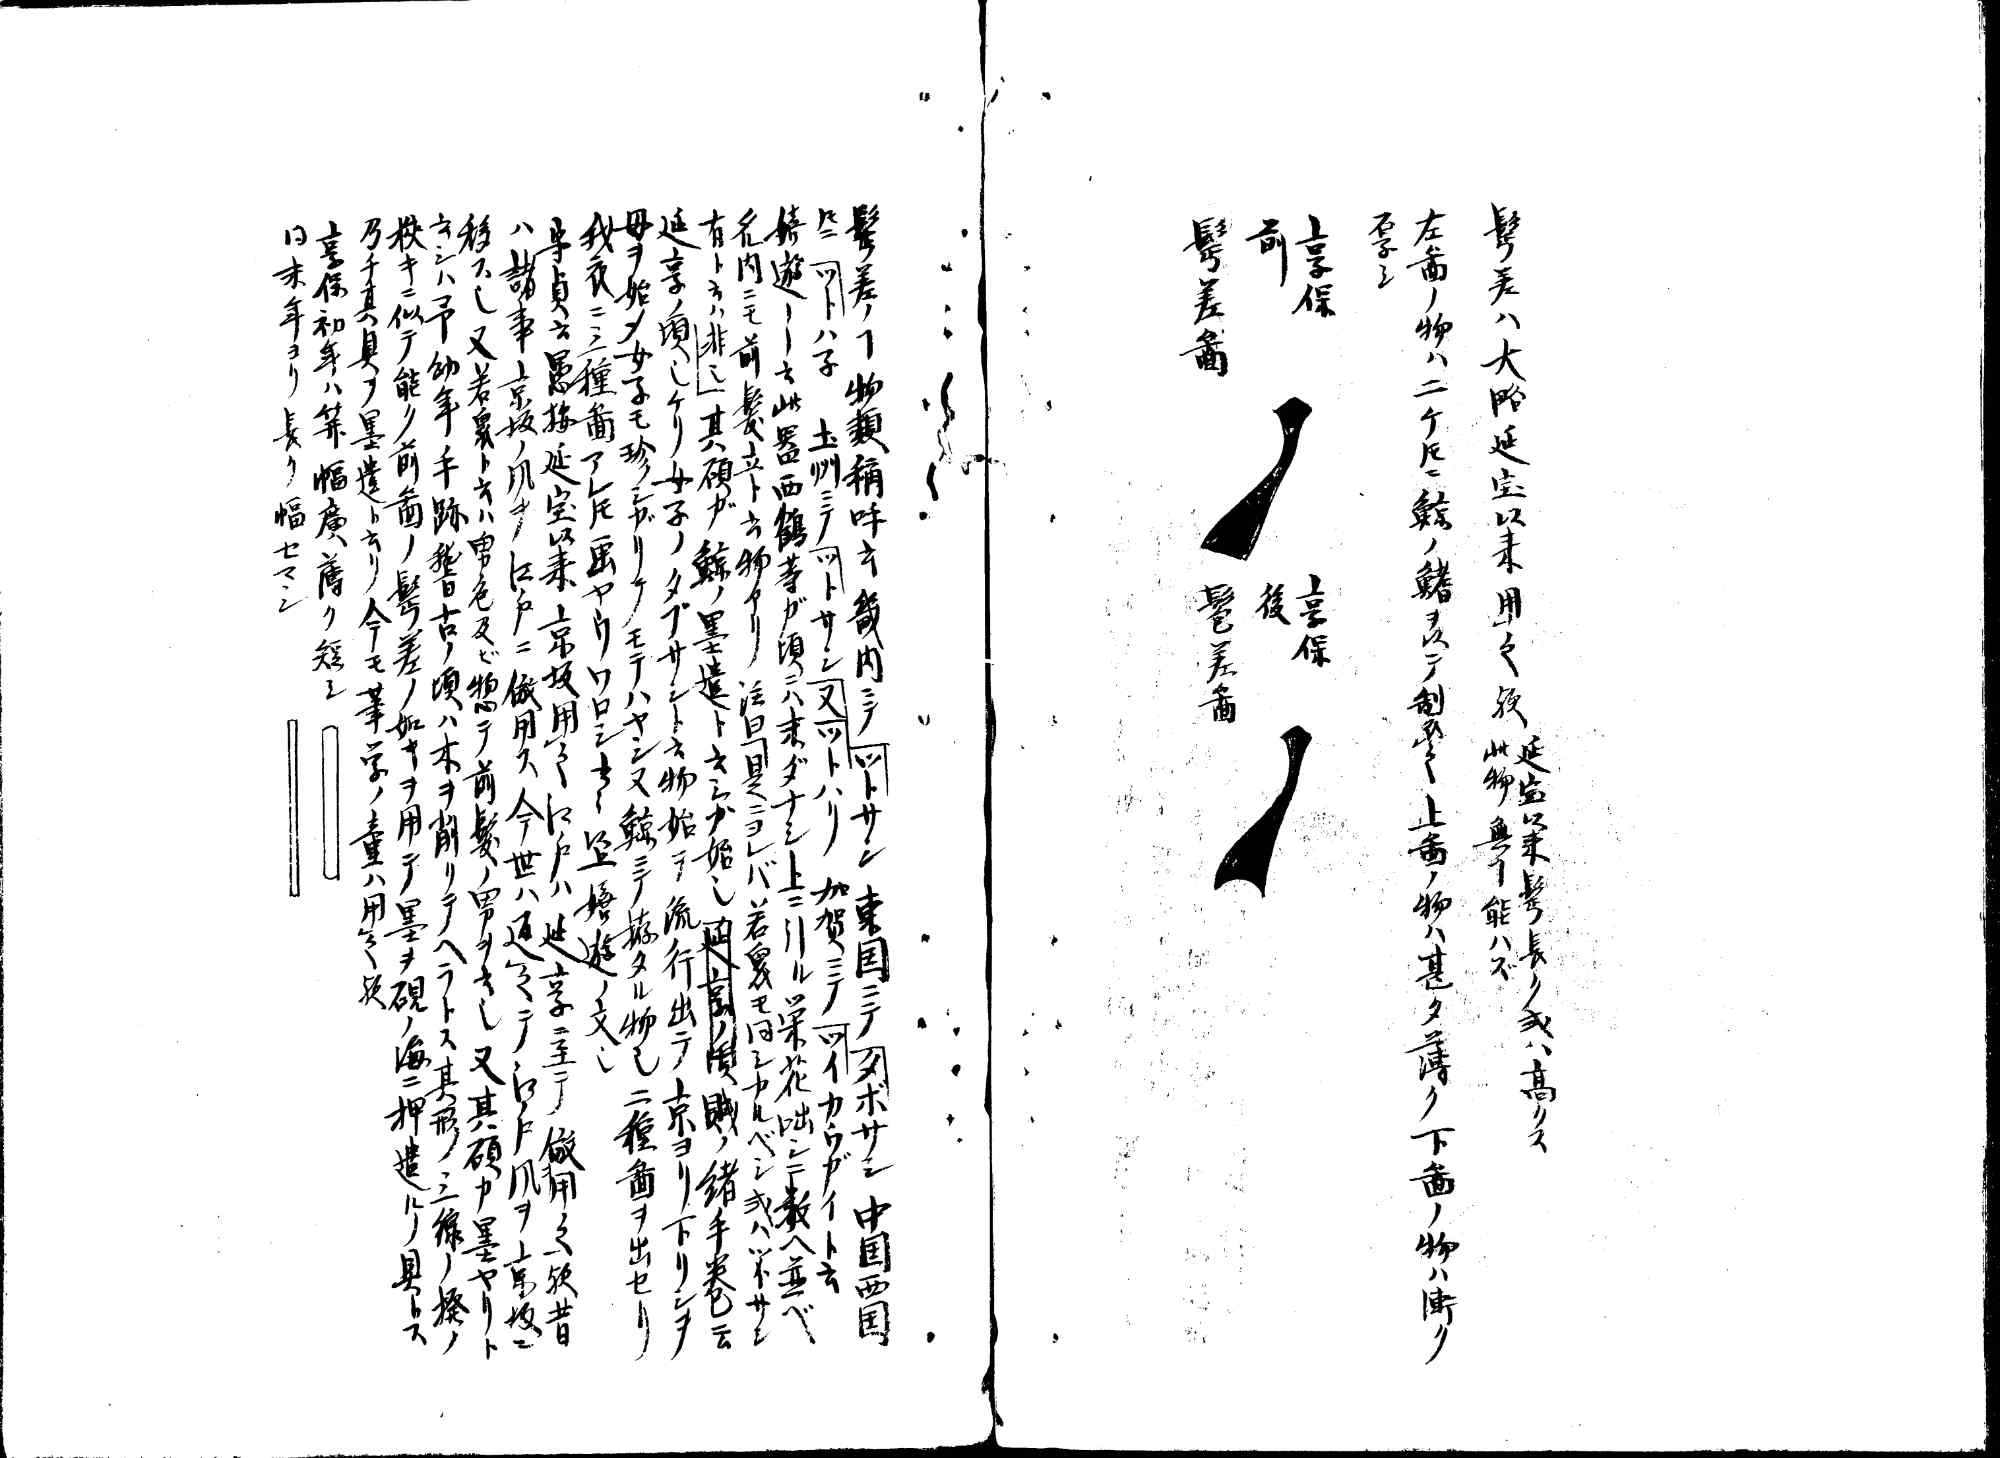 髱差ハ大略延宝以来用之歟 延宝以来髱長ク或ハ高クス
此物無ヿ能ハズ
左畵ノ物ハ二ケ𪜈ニ鯨ノ鰭ヲ以テ制之上畵ノ物ハ甚タ薄ク下畵ノ物ハ漸ク
厚シ
享保
前
髱差畵
享保
後
髱差畵
髱差ノヿ物類称呼云畿内ニテツトサシ東国ニテタボサシ中国西国
𪜈ニツトハ子 土州ニテツトサシ又ツトハリ加賀ニテツイカウガイト云
嬉遊――云此器西鶴等ガ頃ニハ未ダナシ上ニ引ル栄花咄シニ数ヘ並ベ
名内ニモ前髪立ト云物アリ注曰是ニヨレバ若衆モ同シカルベシ或ハツトサシ
有トハ非シ其碩ガ鯨ノ墨遣ト云シガ始也延享ノ頃賤ノ緒手巻云
延享ノ頃也ケリ女子ノタブサシト云物始テ流行出テ京ヨリ下リシヲ
母ヲ始メ女子モ珍シガリテモテハヤシ又鯨ニテ拵タル物也二種畵ヲ出セリ
我衣ニ三種畵アレ𪜈畵ヤウワロシ云々以上嬉遊ノ文也
守貞云愚按延宝以来京坂用之江戸ハ延享ニ至テ倣用之歟昔
ハ諸事京坂ノ風ヲ江戸ニ倣用ス今世ハ通之テ江戸風ヲ京坂ニ
移ス也又若衆ト云ハ男色及ビ惣テ前髪ノ男ヲ云也又其碩カ墨ヤリト
云シハ予幼年手跡稽古ノ頃ハ木ヲ削リテヘラトス其形ノ三線ノ撥ノ
秡キニ似テ能ク前畵ノ髱差ノ如キヲ用テ墨ヲ硯ノ海ニ押遣ルノ具トス
乃チ其具ヲ墨遣ト云リ今モ筆学ノ童ハ用之歟
享保初年ハ笄幅廣薄ク短シ
同末年ヨリ長ク幅セマシ